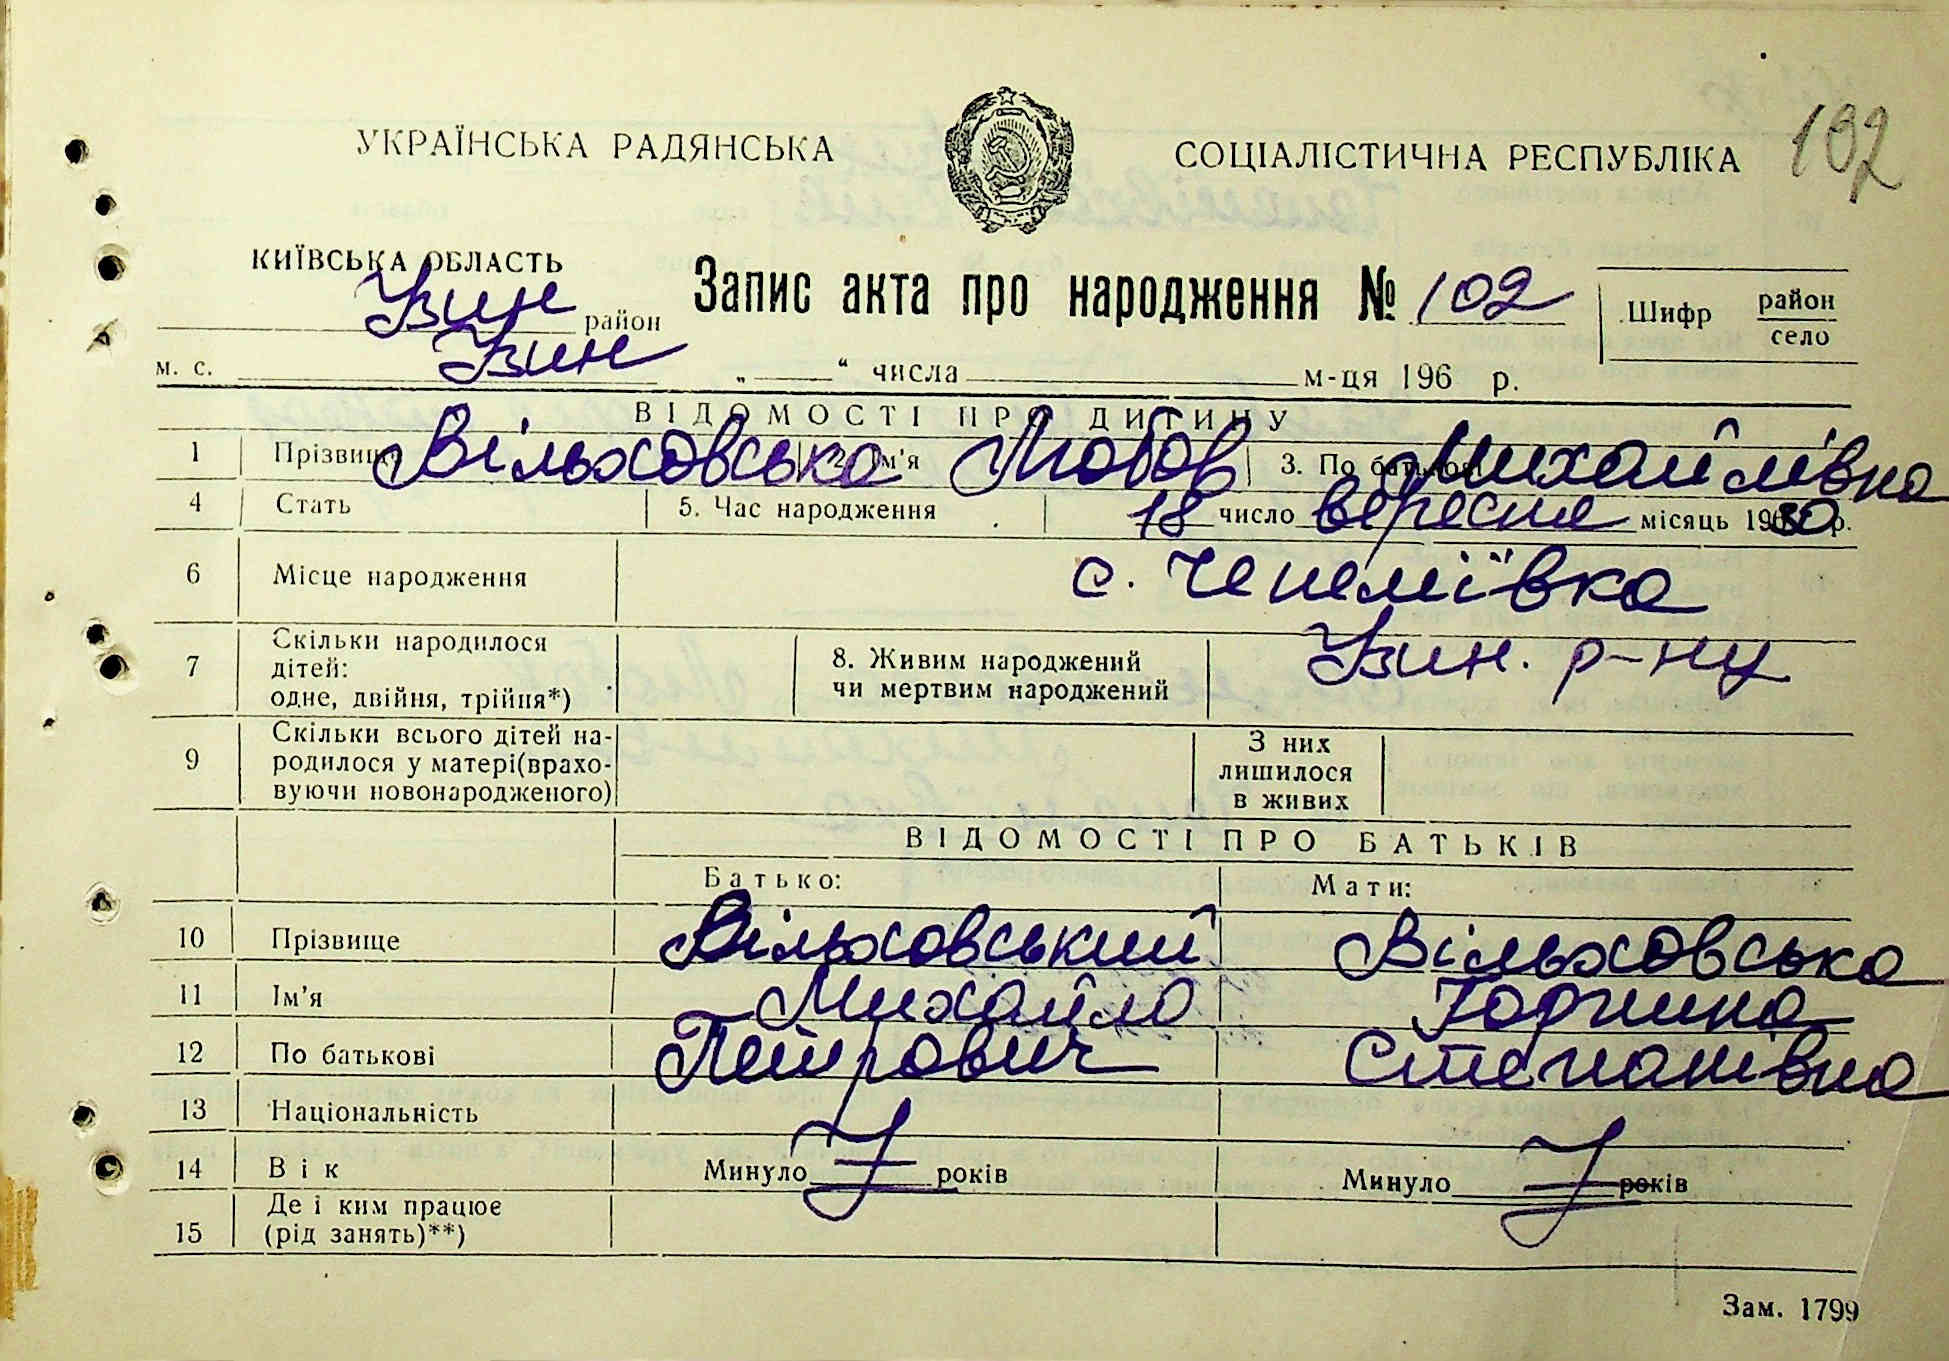 102
УКРАЇНСЬКА РАДЯНСЬКА СОЦІАЛІСТИЧНА РЕСПУБЛІКА
КИЇВСЬКА ОБЛАСТЬ
Узин район
Запис акта про народження № 102
Шифр район село
м. с. Узин „ “ числа м-ця 196 р.
ВІДОМОСТІ ПРО ДИТИНУ
1 Прізвище Вільховська 2. Ім'я Любов 3. По батькові Михайлівна
4 Стать 5. Час народження 18 число вересня місяць 1930 р.
6 Місце народження с. Чепеліївка
Узин. р-ну
7 Скільки народилося
дітей:
одне, двійня, трійня*)
8. Живим народжений
чи мертвим народжений
9 Скільки всього дітей на-
родилося у матері(врахо-
вуючи новонародженого)
З них
лишилося
в живих
ВІДОМОСТІ ПРО БАТЬКІВ
Батько: Мати:
10 Прізвище Вільховський Вільховська
11 Ім'я Михайло Горпина
12 По батькові Петрович Степанівна
13 Національність
14 Вік Минуло років Минуло років
15 Де і ким працює
(рід занять)**)
Зам. 1799